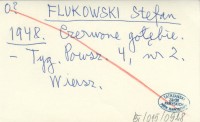 03
FLUKOWSKI Stefan
1948. Czerwone gołębie.
– Tyg. Powsz. 4, nr 2.
Wiersz.